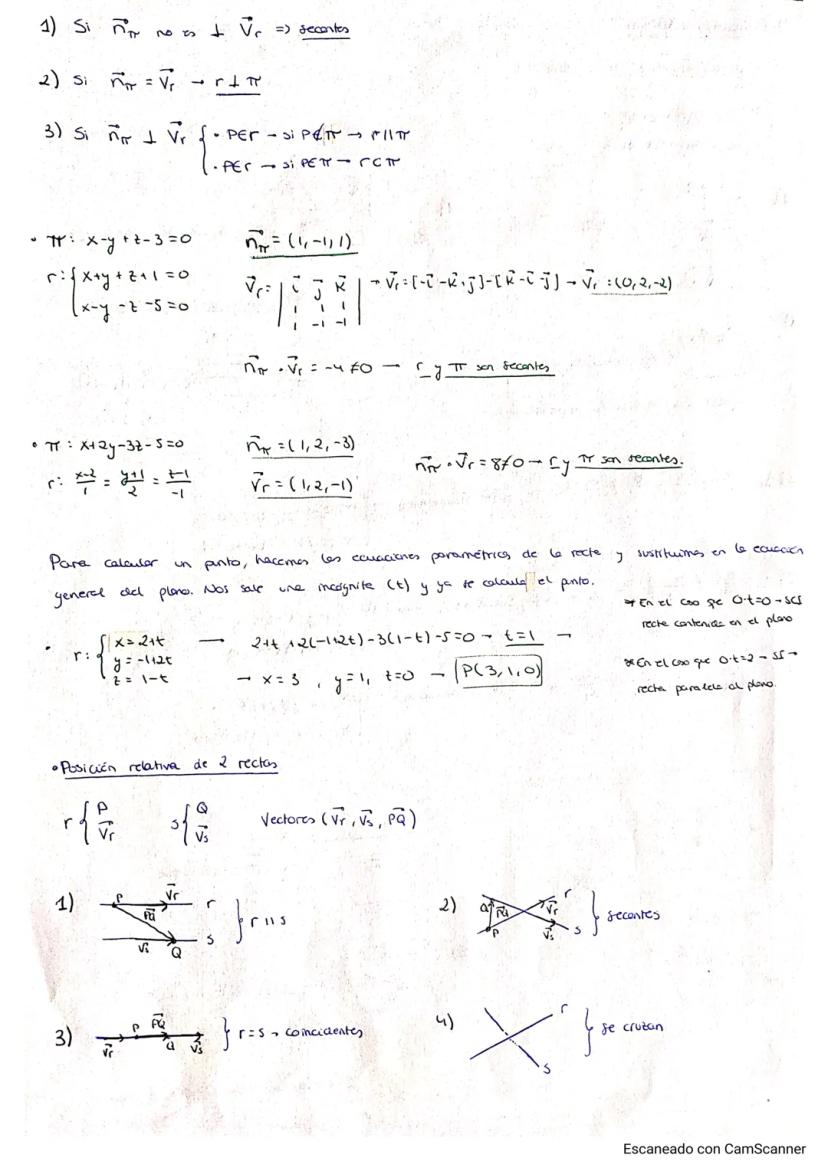 1) Si n⃗π no es ⊥ V⃗r => secantes
2) Si n⃗π = V⃗r → r ⊥ π
3) Si n⃗π ⊥ V⃗r { • P∈r → si P∉π → r∥π
• P∈r → si P∈π → r⊂π
• π: x-y+z-3=0 n⃗π = (1,-1,1)
r: { x+y+z+1=0
x-y-z-5=0
V⃗r = | i⃗ j⃗ k⃗
1 1 1
1 -1 -1 | → V⃗r = [-i⃗-k⃗+j⃗]-[k⃗-i⃗-j⃗] → V⃗r: (0,2,-2)
n⃗π · V⃗r = -4 ≠ 0 → r y π son secantes
• π: x+2y-3z-5=0 n⃗π = (1,2,-3)
r: x-2/1 = y+1/2 = z-1/-1 V⃗r = (1,2,-1) n⃗π · V⃗r = 8≠0 → r y π son secantes.
Para calcular un punto, hacemos las ecuaciones paramétricas de la recta y sustituimos en la ecuación
general del plano. Nos sale una incógnita (t) y ya se calcula el punto.
• r: { x = 2+t → 2+t+2(-1+2t)-3(1-t)-5=0 → t=1 →
y = -1+2t
z = 1-t → x=3, y=1, z=0 → P(3,1,0)
* En el caso que 0·t=0 → SCI
recta contenida en el plano
* En el caso que 0·t=2 → SI →
recta paralela al plano.
• Posición relativa de 2 rectas
r { P V⃗r s { Q V⃗s Vectores (V⃗r, V⃗s, PQ⃗)
1) P V⃗r r PQ⃗ s V⃗s Q } r ∥ s
2) Q PQ⃗ P V⃗r r V⃗s s } secantes
3) V⃗r P PQ⃗ Q V⃗s } r=s → coincidentes
4) r s } se cruzan
Escaneado con CamScanner